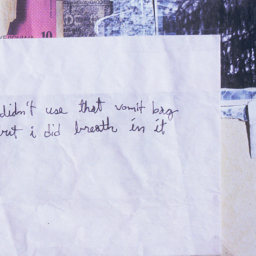 10
didn't use that vomit bag
but i did breath in it